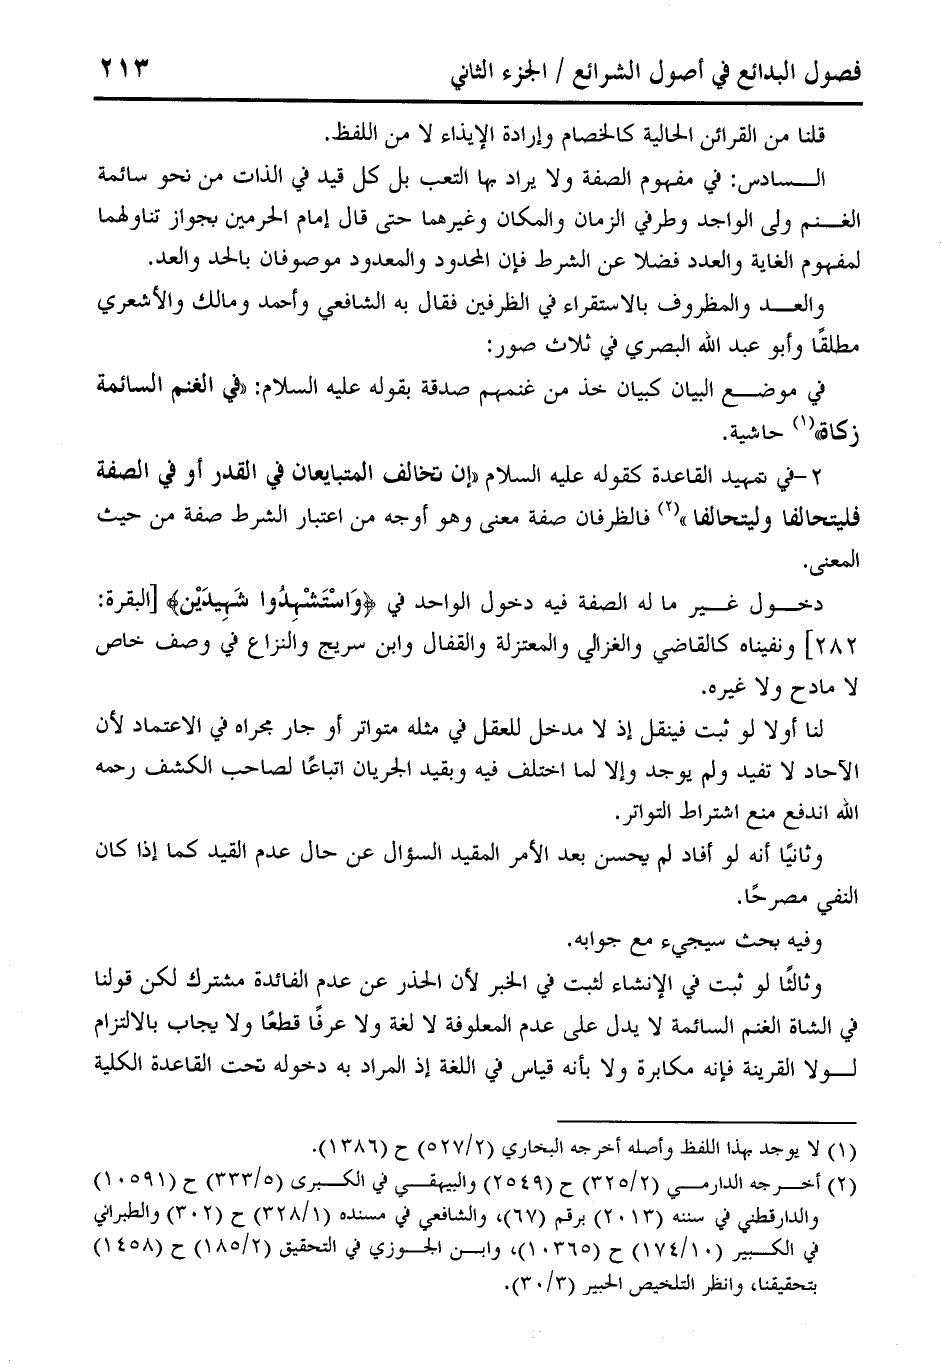 فصول البدائع في أصول الشرائع / الجزء الثاني ٢١٣
قلنا من القرائن الحالية كالخصام وإرادة الإيذاء لا من اللفظ.
السادس: في مفهوم الصفة ولا يراد بها التعب بل كل قيد في الذات من نحو سائمة
الغنم ولى الواجد وطرفي الزمان والمكان وغيرهما حتى قال إمام الحرمين بجواز تناولهما
لمفهوم الغاية والعدد فضلا عن الشرط فإن المحدود والمعدود موصوفان بالحد والعد.
والعد والمظروف بالاستقراء في الظرفين فقال به الشافعي وأحمد ومالك والأشعري
مطلقًا وأبو عبد الله البصري في ثلاث صور:
في موضع البيان كبيان خذ من غنمهم صدقة بقوله عليه السلام: «في الغنم السائمة
زكاة»(١) حاشية.
٢-في تمهيد القاعدة كقوله عليه السلام «إن تخالف المتبايعان في القدر أو في الصفة
فليتحالفا وليتحالفا»(٢) فالظرفان صفة معنى وهو أوجه من اعتبار الشرط صفة من حيث
المعنى.
دخول غير ما له الصفة فيه دخول الواحد في ﴿وَاسْتَشْهِدُوا شَهِيدَيْن﴾ [البقرة:
٢٨٢] ونفيناه كالقاضي والغزالي والمعتزلة والقفال وابن سريج والنزاع في وصف خاص
لا مادح ولا غيره.
لنا أولا لو ثبت فينقل إذ لا مدخل للعقل في مثله متواتر أو جار مجراه في الاعتماد لأن
الآحاد لا تفيد ولم يوجد وإلا لما اختلف فيه وبقيد الجريان اتباعًا لصاحب الكشف رحمه
الله اندفع منع اشتراط التواتر.
وثانيًا أنه لو أفاد لم يحسن بعد الأمر المقيد السؤال عن حال عدم القيد كما إذا كان
النفي مصرحًا.
وفيه بحث سيجيء مع جوابه.
وثالثًا لو ثبت في الإنشاء لثبت في الخبر لأن الحذر عن عدم الفائدة مشترك لكن قولنا
في الشاة الغنم السائمة لا يدل على عدم المعلوفة لا لغة ولا عرفًا قطعًا ولا يجاب بالالتزام
لولا القرينة فإنه مكابرة ولا بأنه قياس في اللغة إذ المراد به دخوله تحت القاعدة الكلية
(١) لا يوجد بهذا اللفظ وأصله أخرجه البخاري (٥٢٧/٢) ح (١٣٨٦).
(٢) أخرجه الدارمي (٣٢٥/٢) ح (٢٥٤٩) والبيهقي في الكبرى (٣٣٣/٥) ح (١٠٥٩١)
والدارقطني في سننه (٢٠١٣) برقم (٦٧)، والشافعي في مسنده (٣٢٨/١) ح (٣٠٢) والطبراني
في الكبير (١٧٤/١٠) ح (١٠٣٦٥)، وابن الجوزي في التحقيق (١٨٥/٢) ح (١٤٥٨)
بتحقيقنا، وانظر التلخيص الحبير (٣٠/٣).